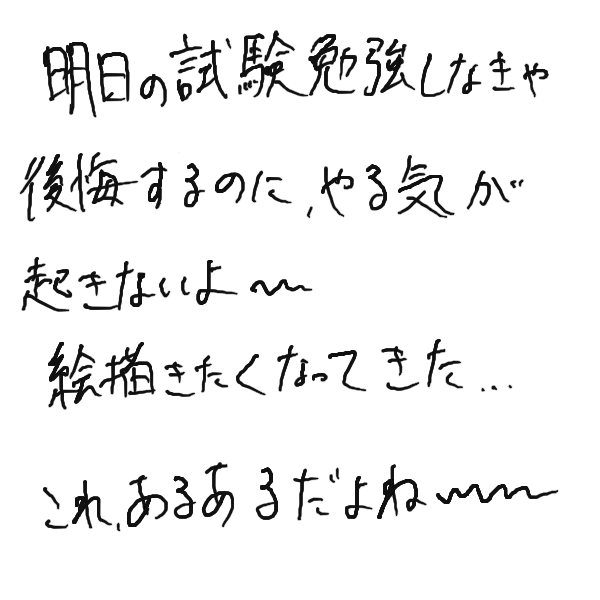 明日の試験勉強しなきゃ
後悔するのに、やる気が
起きないよ〜
絵描きたくなってきた...
これ、あるあるだよね〜〜